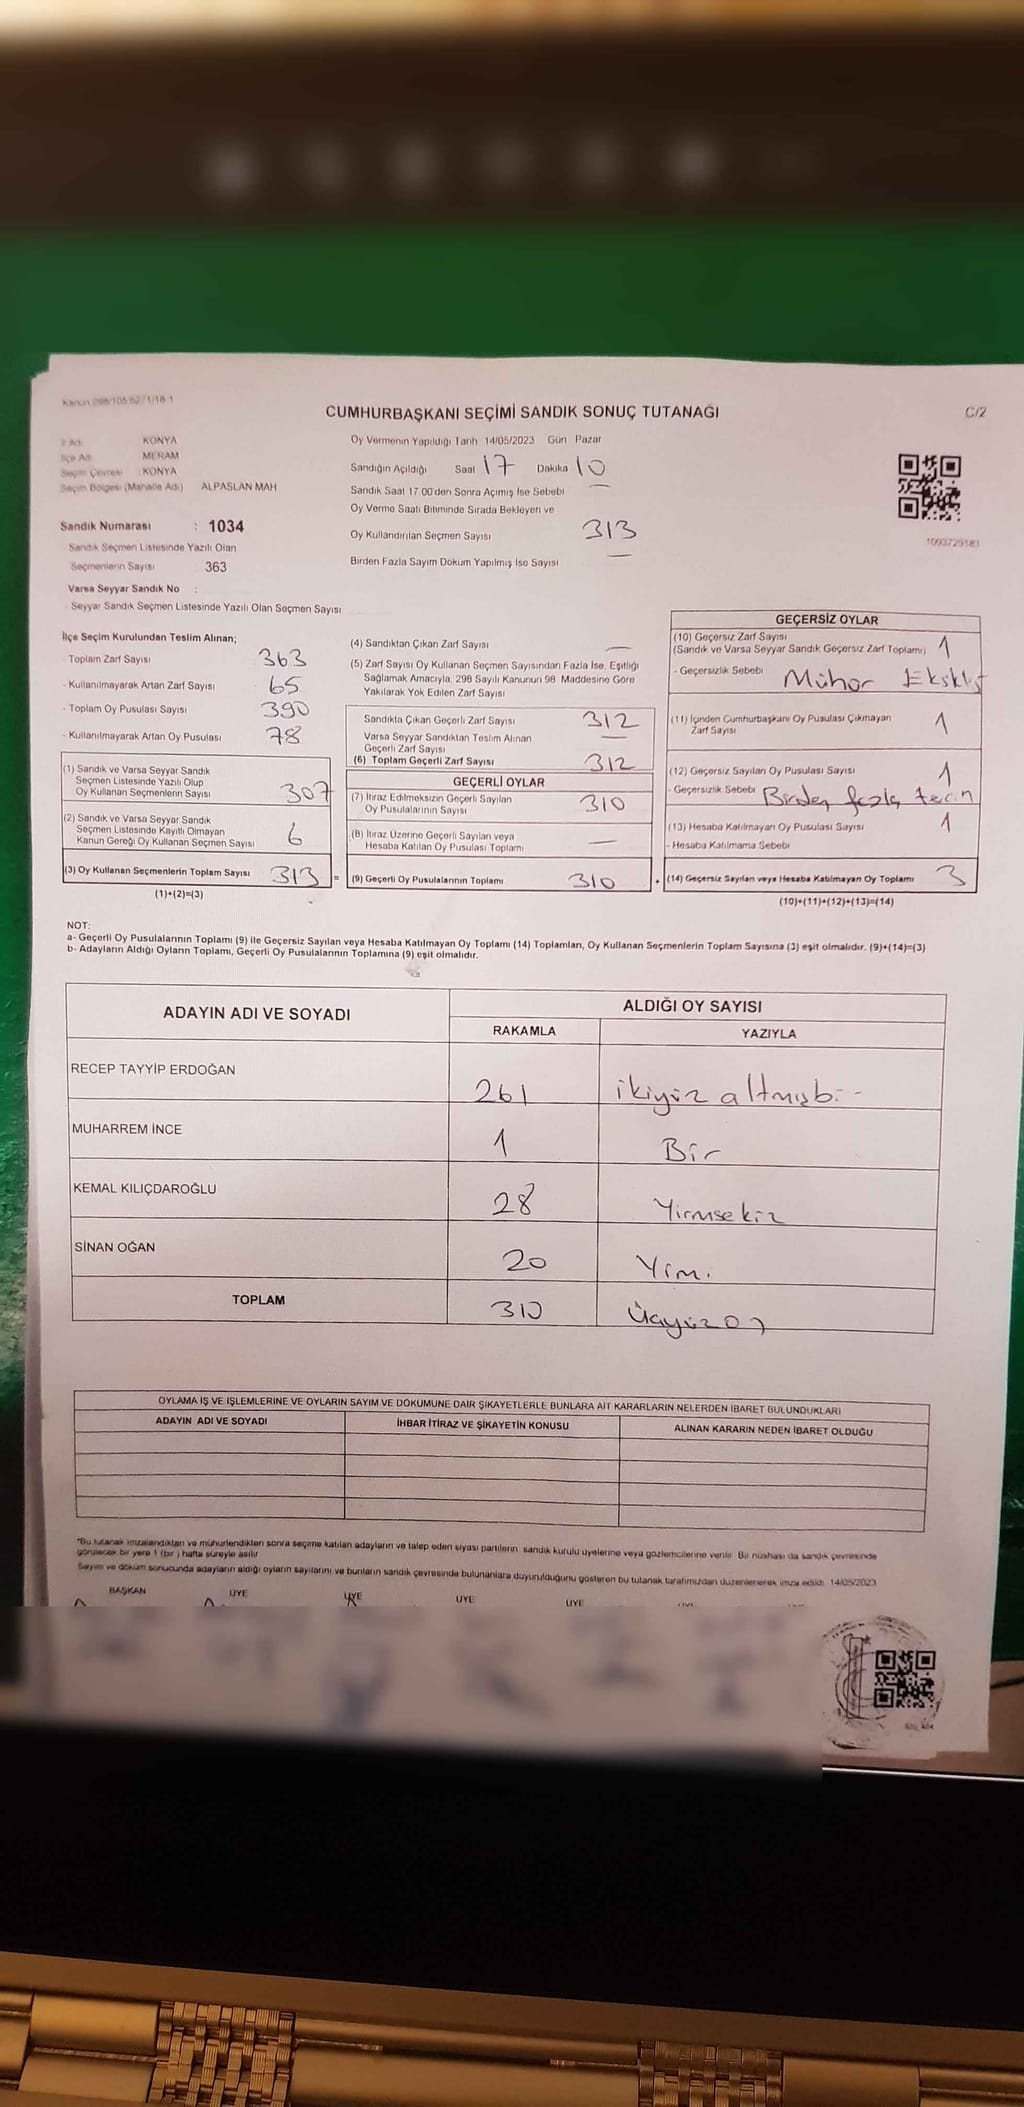 Kanun 298/105
CUMHURBAŞKANI SEÇİMİ SANDIK SONUÇ TUTANAĞI
C/2
İl Adı KONYA
İlçe Adı MERAM
Seçim Çevresi KONYA
Seçim Bölgesi (Mahalle Adı) ALPASLAN MAH
Sandık Numarası : 1034
Sandık Seçmen Listesinde Yazılı Olan
Seçmenlerin Sayısı 363
Varsa Seyyar Sandık No :
Seyyar Sandık Seçmen Listesinde Yazılı Olan Seçmen Sayısı
Oy Vermenin Yapıldığı Tarih 14/05/2023 Gün Pazar
Sandığın Açıldığı Saat 17 Dakika 10
Sandık Saat 17 00'den Sonra Açımış İse Sebebi —
Oy Verme Saati Bitiminde Sırada Bekleyen ve
Oy Kullandırılan Seçmen Sayısı 313
Birden Fazla Sayım Döküm Yapılmış İse Sayısı —
1093729183
İlçe Seçim Kurulundan Teslim Alınan;
- Toplam Zarf Sayısı 363
- Kullanılmayarak Artan Zarf Sayısı 65
- Toplam Oy Pusulası Sayısı 390
- Kullanılmayarak Artan Oy Pusulası 78
(1) Sandık ve Varsa Seyyar Sandık
Seçmen Listesinde Yazılı Olup
Oy Kullanan Seçmenlerin Sayısı 307
(2) Sandık ve Varsa Seyyar Sandık
Seçmen Listesinde Kayıtlı Olmayan
Kanun Gereği Oy Kullanan Seçmen Sayısı 6
(3) Oy Kullanan Seçmenlerin Toplam Sayısı 313 =
(1)+(2)=(3)
(4) Sandıktan Çıkan Zarf Sayısı —
(5) Zarf Sayısı Oy Kullanan Seçmen Sayısından Fazla İse, Eşitliği
Sağlamak Amacıyla, 298 Sayılı Kanunun 98. Maddesine Göre
Yakılarak Yok Edilen Zarf Sayısı
Sandıkta Çıkan Geçerli Zarf Sayısı 312
Varsa Seyyar Sandıktan Teslim Alınan
Geçerli Zarf Sayısı —
(6) Toplam Geçerli Zarf Sayısı 312
GEÇERLİ OYLAR
(7) İtiraz Edilmeksizin Geçerli Sayılan
Oy Pusulalarının Sayısı 310
(8) İtiraz Üzerine Geçerli Sayılan veya
Hesaba Katılan Oy Pusulası Toplamı —
(9) Geçerli Oy Pusulalarının Toplamı 310 +
GEÇERSİZ OYLAR
(10) Geçersiz Zarf Sayısı
(Sandık ve Varsa Seyyar Sandık Geçersiz Zarf Toplamı) 1
- Geçersizlik Sebebi Mühör
(11) İçinden Cumhurbaşkanı Oy Pusulası Çıkmayan
Zarf Sayısı 1
(12) Geçersiz Sayılan Oy Pusulası Sayısı 1
- Geçersizlik Sebebi Birden fazla
(13) Hesaba Katılmayan Oy Pusulası Sayısı 1
- Hesaba Katılmama Sebebi
(14) Geçersiz Sayılan veya Hesaba Katılmayan Oy Toplamı 3
(10)+(11)+(12)+(13)=(14)
NOT:
a- Geçerli Oy Pusulalarının Toplamı (9) ile Geçersiz Sayılan veya Hesaba Katılmayan Oy Toplamı (14) Toplamları, Oy Kullanan Seçmenlerin Toplam Sayısına (3) eşit olmalıdır. (9)+(14)=(3)
b- Adayların Aldığı Oyların Toplamı, Geçerli Oy Pusulalarının Toplamına (9) eşit olmalıdır.
ADAYIN ADI VE SOYADI ALDIĞI OY SAYISI
RAKAMLA YAZIYLA
RECEP TAYYİP ERDOĞAN 261 ikiyüz altmışbi-
MUHARREM İNCE 1 Bir
KEMAL KILIÇDAROĞLU 28 Yirmsekiz
SİNAN OĞAN 20 Yirmi
TOPLAM 310 Üçyüzon
OYLAMA İŞ VE İŞLEMLERİNE VE OYLARIN SAYIM VE DÖKÜMÜNE DAİR ŞİKAYETLERLE BUNLARA AİT KARARLARIN NELERDEN İBARET BULUNDUKLARI
ADAYIN ADI VE SOYADI İHBAR İTİRAZ VE ŞİKAYETİN KONUSU ALINAN KARARIN NEDEN İBARET OLDUĞU
*Bu tutanak imzalandıktan ve mühürlendikten sonra seçime katılan adayların ve talep eden siyasi partilerin sandık kurulu üyelerine veya gözlemcilerine verilir. Bir nüshası da sandık çevresinde
görülecek bir yere 1 (bir) hafta süreyle asılır
Sayım ve döküm sonucunda adayların aldığı oyların sayılarını ve bunların sandık çevresinde bulunanlara duyurulduğunu gösteren bu tutanak tarafımızdan düzenlenerek imza edildi. 14/05/2023
BAŞKAN ÜYE ÜYE ÜYE ÜYE